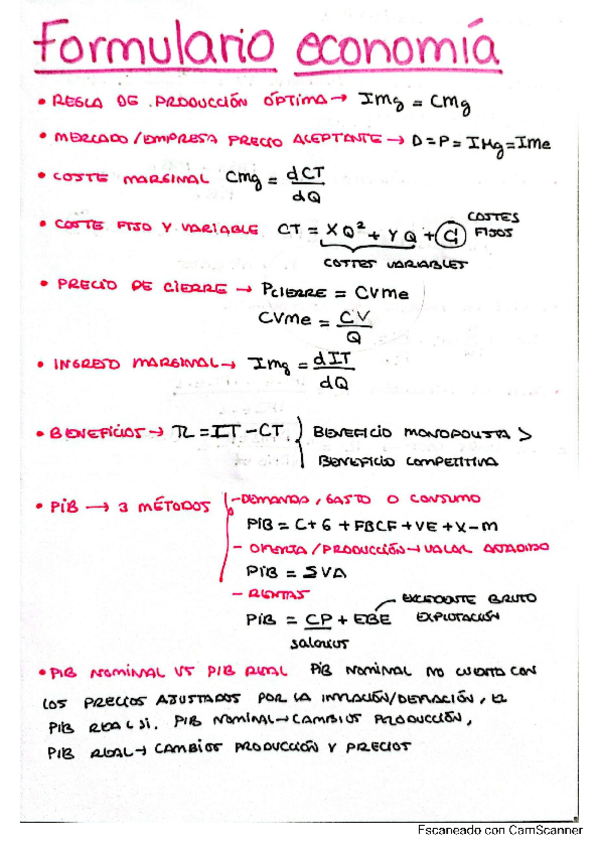 Formulario economía
• REGLA DE PRODUCCIÓN ÓPTIMA → IMg = CMg
• MERCADO/EMPRESA PRECIO ACEPTANTE → D = P = IMg = IMe
• COSTE MARGINAL CMg = dCT/dQ
• COSTE FIJO Y VARIABLE CT = XQ² + YQ + C COSTES FIJOS
COSTES VARIABLES
• PRECIO DE CIERRE → PCIERRE = CVMe
CVMe = CV/Q
• INGRESO MARGINAL → IMg = dIT/dQ
• BENEFICIOS → π = IT - CT BENEFICIO MONOPOLISTA >
BENEFICIO COMPETITIVA
• PIB → 3 MÉTODOS - DEMANDA, GASTO O CONSUMO
PIB = C + G + FBCF + VE + X - M
- OFERTA/PRODUCCIÓN → VALOR AÑADIDO
PIB = ΣVA
- RENTAS
PIB = CP + EBE EXCEDENTE BRUTO EXPLOTACIÓN
salarios
• PIB NOMINAL VS PIB REAL PIB NOMINAL NO CUENTA CON
LOS PRECIOS AJUSTADOS POR LA INFLACIÓN/DEFLACIÓN, EL
PIB REAL SI. PIB NOMINAL → CAMBIOS PRODUCCIÓN,
PIB REAL → CAMBIOS PRODUCCIÓN Y PRECIOS
Escaneado con CamScanner